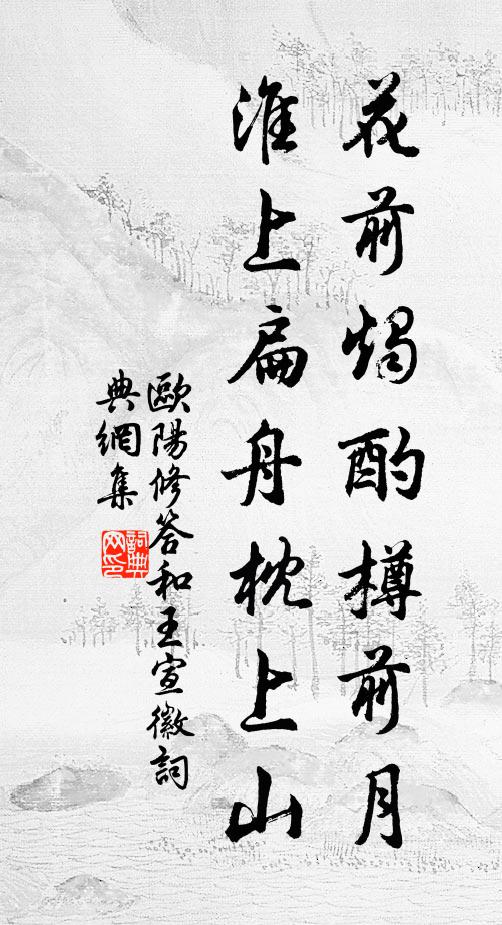 花前獨酌樽前月
淮上扁舟枕上山
歐陽修答和王宣徽詞
典網集
詞典
网印